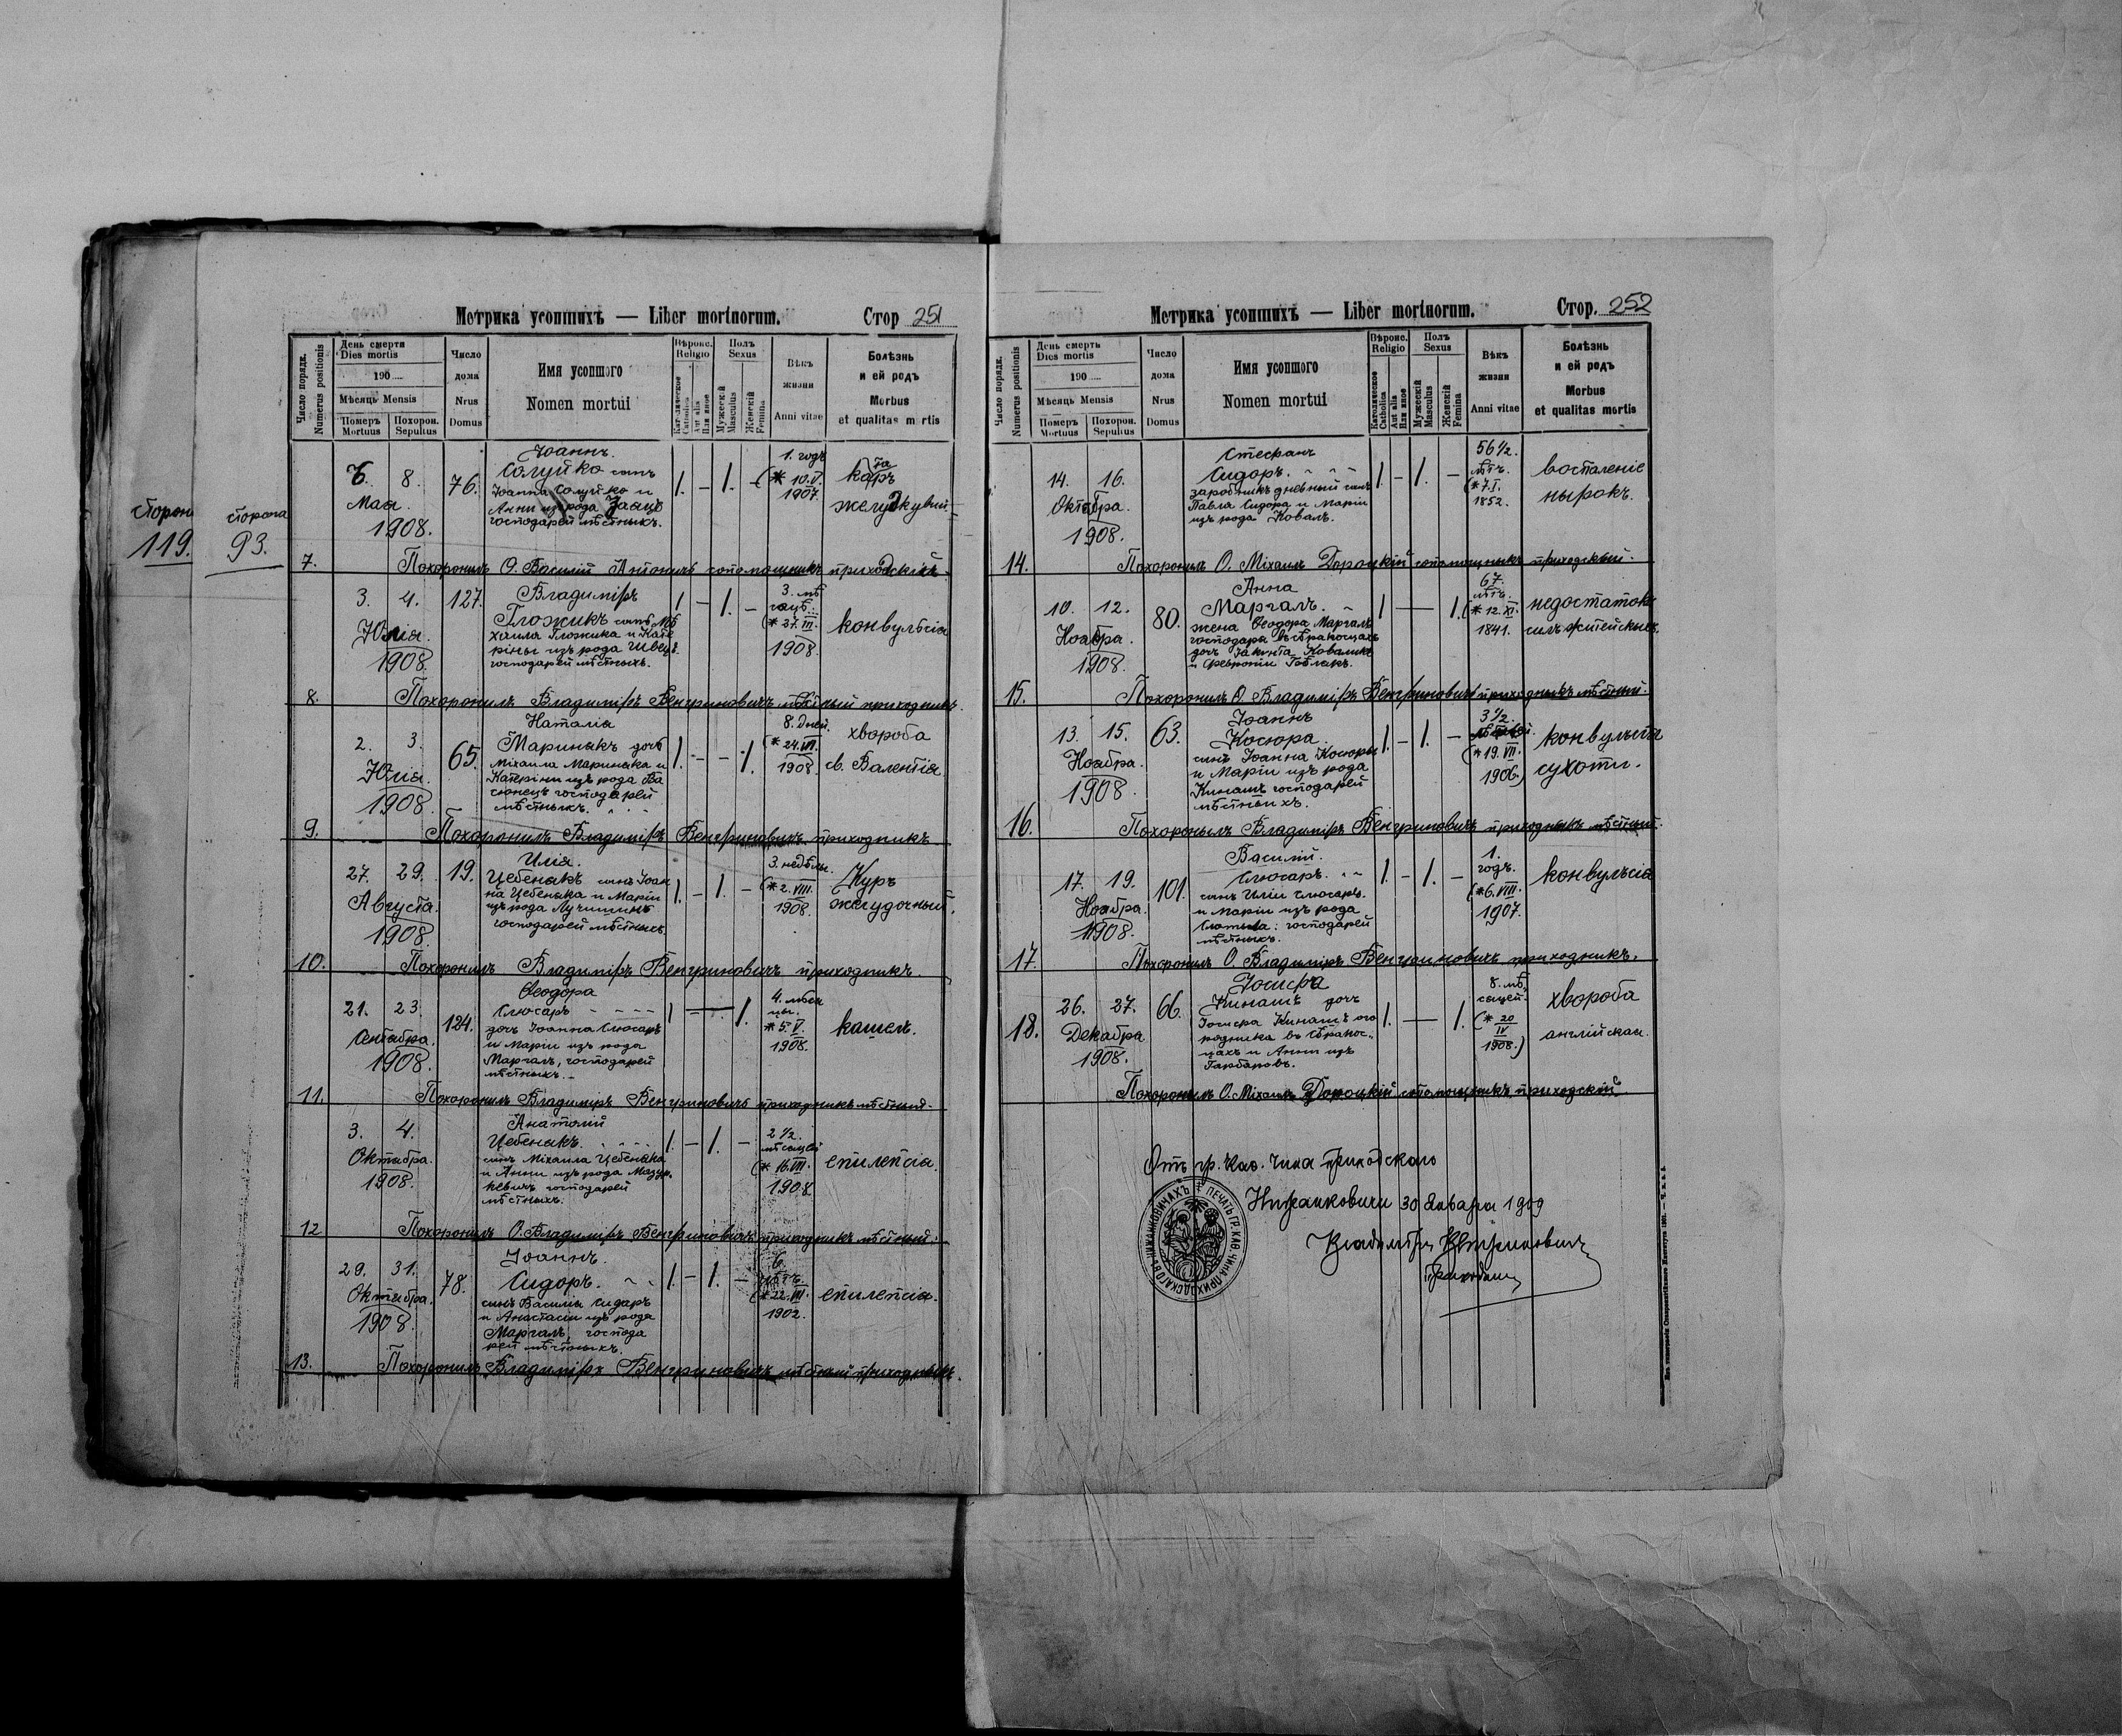 сторона
119.
сторона
93.
Метрика усопшихъ — Liber mortuorum.
Стор 251
Число порядк.
Numerus positionis
День смерти
Dies mortis
190
Мѣсяць Mensis
Померъ
Mortuus
Похорон.
Sepultus
Число
дома
Nrus
Domus
Имя усопшого
Nomen mortui
Вѣроис.
Religio
Католическое
Catholica
Aut alia
Или иное
Полъ
Sexus
Мужескій
Masculus
Женскій
Femina
Вѣкъ
жизни
Anni vitae
Болѣзнь
и ей родъ
Morbus
et qualitas mortis
8.
Мая.
1908.
76.
Іоаннъ.
Солуйко сынъ
Іоанна Солуйко и
Анны изъ рода Заяцъ
господарей мѣстныхъ.
1. — 1. —
1. годъ
(* 10.V.
1907.
7.
Похоронилъ О. Василій сопомощникъ приходскій.
3. 4.
Юлія.
1908.
127.
Владиміръ
Гложикъ сынъ Мі
хаила Гложика и Кате
рины изъ рода Швецъ
господарей мѣстныхъ.
1 — 1. —
3. мѣ
сяцѣ.
(* 27. III.
1908.
конвульсія
8.
Похоронилъ Владиміръ Венгриновичъ мѣстный приходникъ.
2. 3.
Юлія.
1908.
65.
Наталія
Маринякъ дочь
Міхаила Мариняка и
Катерины изъ рода Ва
господарей
мѣстныхъ.
1. — — 1.
8. дней
(* 24.VI.
1908.
хвороба
св. Валентія
9.
Похоронилъ Владиміръ Венгриновичъ приходникъ
27. 29.
Августа.
1908.
19.
Илія.
Цебенякъ сынъ Іоан
на Цебеняка и Маріи
изъ рода
господарей мѣстныхъ.
1. — 1. —
3. недѣлы.
(* 2. VIII.
1908.
Куръ
желудочный.
10.
Похоронилъ Владиміръ Венгриновичъ приходникъ.
21. 23.
Септября.
1908.
124.
Ѳеодора
Слюсаръ
дочь Іоанна Слюсаръ
и Маріи изъ рода
Маргаль, господарей
мѣстныхъ.
1 — 1.
4. мѣся
цы.
* 5. V.
1908.
кашель.
11.
Похоронилъ Владиміръ Венгриновичъ приходникъ мѣстный.
3. 4.
Октября.
1908.
Анатолій
Цебенякъ.
сынъ Міхаила Цебеняка
и Анны изъ рода Мазур
кевичъ господарей
мѣстныхъ.
1. — 1. —
2 1/2.
мѣсяцей
(* 16.VII.
1908.
епилепсія.
12
Похоронилъ О. Владиміръ Венгриновичъ приходникъ мѣстный.
29. 31.
Октября.
1908.
78.
Іоаннъ.
Сидоръ.
сынъ Василія Сидоръ
и Анастасіи изъ рода
Маргаль, господа
рей мѣстныхъ.
1. — 1. —
6.
лѣтъ.
(* 22.VII.
1902.
епилепсія.
13.
Похоронилъ Владиміръ Венгриновичъ мѣстный приходникъ.
Метрика усопшихъ — Liber mortuorum.
Стор. 252
Число порядк.
Numerus positionis
День смерть
Dies mortis
190
Мѣсяць Mensis
Померъ
Mortuus
Похорон.
Sepultus
Число
дома
Nrus
Domus
Имя усопшого
Nomen mortui
Вѣроис.
Religio
Католическое
Catholica
Aut alia
Или иное
Полъ
Sexus
Мужескій
Masculus
Женскій
Femina
Вѣкъ
жизни
Anni vitae
Болѣзнь
и ей родъ
Morbus
et qualitas mortis
14. 16.
Октября.
1908.
Стефанъ
Сидоръ.
заробникъ дневный сынъ
Павла Сидора и Маріи
изъ рода Коваль.
1. — 1. —
56 1/2.
лѣтъ.
(* 7.I.
1852.
воспаленіе
нырокъ.
14.
Похоронилъ О. Міхаилъ Дороцкій сопомощникъ приходскый.
10. 12.
Ноября.
1908.
80.
Анна
Маргаль.
жена Ѳеодора Маргаль
господаря
дочь Ковалика
и Февроніи
1 — 1.
67.
лѣтъ.
(* 12. XI.
1841.
недостатокъ
силъ житейскыхъ.
15.
Похоронилъ О. Владиміръ Венгриновичъ приходникъ мѣстный.
13. 15.
Ноября.
1908.
63.
Іоаннъ
Косюра.
сынъ Іоанна Косюры
и Маріи изъ рода
Кинашъ господарей
мѣстныхъ.
1. — 1. —
3 1/2.
(* 19. VII.
1906.)
конвульсія
сухоты.
16.
Похоронылъ Владиміръ Венгриновичъ приходникъ мѣстный.
17. 19.
Ноября.
1908.
101.
Василій.
Слюсаръ.
сынъ Иліи Слюсаръ.
и Маріи изъ рода
господарей
мѣстныхъ.
1. — 1. —
1.
годъ.
(* 6. VIII.
1907.
конвульсія
17.
Похоронилъ О. Владиміръ Венгриновичъ приходникъ.
26. 27.
Декабря
1908.
66.
Іосифа
Кинашъ дочь
Іосифа Кинашъ ого
родника въ
цахъ и Анны изъ
1. — 1.
8. мѣ
сяцей.
(* 20
IV
1908.)
хвороба
англійская.
18.
Похоронилъ О. Міхаилъ Дороцкій сопомощникъ приходскій.
Отъ гр. каѳ. чина приходскаго
Нижанковичи 30 Января 1909
Владиміръ Венгриновичъ
Приходникъ
ПЕЧАТЬ ГР. КАѲ. ЧИНА ПРИХОДСКАГО ВЪ НИЖАНКОВИЧАХЪ